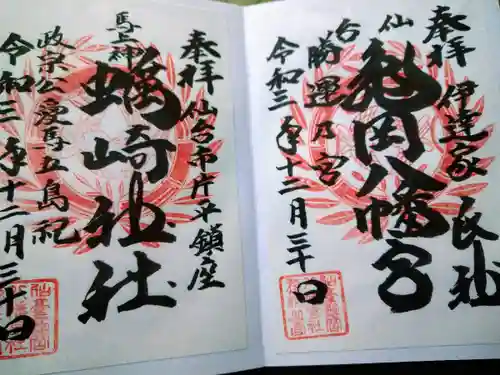 奉拝 伊達家氏社
仙台
亀岡八幡宮
勝運乃宮
令和三年十二月三十日
奉拝 仙台市片平鎮座
馬上神
蠣崎神社
政宗公愛馬五島祀
令和三年十二月三十日